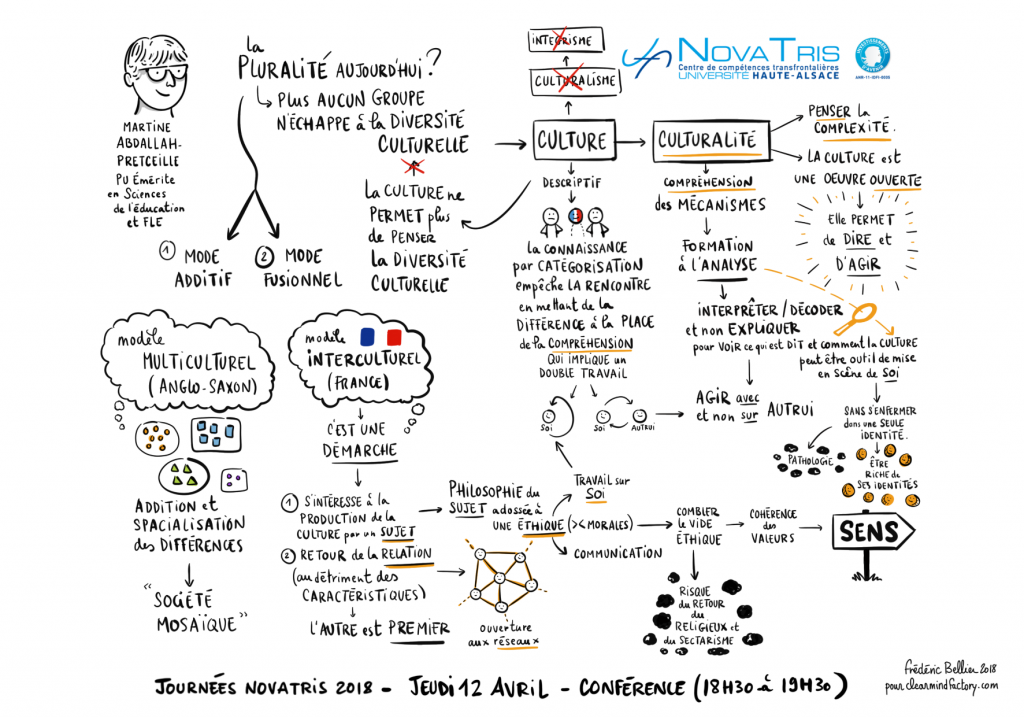 MARTINE
ABDALLAH-
PRETCEILLE
PU ÉMÉRITE
en SCIENCES
de l'éducation
et FLE
la
PLURALITÉ AUJOURD'HUI?
PLUS AUCUN GROUPE
N'ÉCHAPPE à la DIVERSITÉ
CULTURELLE
la CULTURE ne
PERMET plus
de PENSER
la DIVERSITÉ
CULTURELLE
1 MODE
ADDITIF
2 MODE
FUSIONNEL
INTEGRISME
CULTURALISME
CULTURE
CULTURALITÉ
NOVATRIS
Centre de compétences transfrontalières
UNIVERSITÉ HAUTE-ALSACE
INVESTISSEMENTS
D'AVENIR
ANR-11-IDFI-0005
PENSER la
COMPLEXITÉ.
LA CULTURE est
UNE OEUVRE OUVERTE
Elle PERMET
de DIRE et
D'AGIR
DESCRIPTIF
la CONNAISSANCE
par CATÉGORISATION
empêche LA RENCONTRE
en mettant de la
DIFFÉRENCE à la PLACE
de la COMPRÉHENSION
QUI IMPLIQUE un
DOUBLE TRAVAIL
SOI
SOI
AUTRUI
COMPRÉHENSION
des MÉCANISMES
FORMATION
à l'ANALYSE
INTERPRÊTER / DÉCODER
et non EXPLIQUER
pour VOIR ce qui est DIT et comment la CULTURE
peut être outil de mise
en scène de SOI
AGIR avec
et non sur AUTRUI
SANS S'ENFERMER
dans une SEULE
IDENTITÉ.
PATHOLOGIE
ÊTRE
RICHE de
SES IDENTITÉS
modèle
MULTICULTUREL
(ANGLO-SAXON)
ADDITION et
SPACIALISATION
des DIFFÉRENCES
"SOCIÉTÉ
MOSAÏQUE"
modèle
INTERCULTUREL
(FRANCE)
C'EST UNE
DÉMARCHE
1 S'INTÉRESSE à la
PRODUCTION de la
CULTURE par un SUJET
2 RETOUR de la RELATION
(au détriment des
CARACTÉRISTIQUES)
L'AUTRE est PREMIER
PHILOSOPHIE du
SUJET adossée à
UNE ÉTHIQUE (>< MORALES)
TRAVAIL sur
SOI
COMMUNICATION
ouverture
aux réseaux
COMBLER
le VIDE
ÉTHIQUE
COHÉRENCE
des
VALEURS
SENS
RISQUE
du RETOUR
du
RELIGIEUX et
du SECTARISME
JOURNÉES NOVATRIS 2018 - JEUDI 12 AVRIL - CONFÉRENCE (18H30 à 19H30)
frédéric Bellier 2018
pour clearmindfactory.com